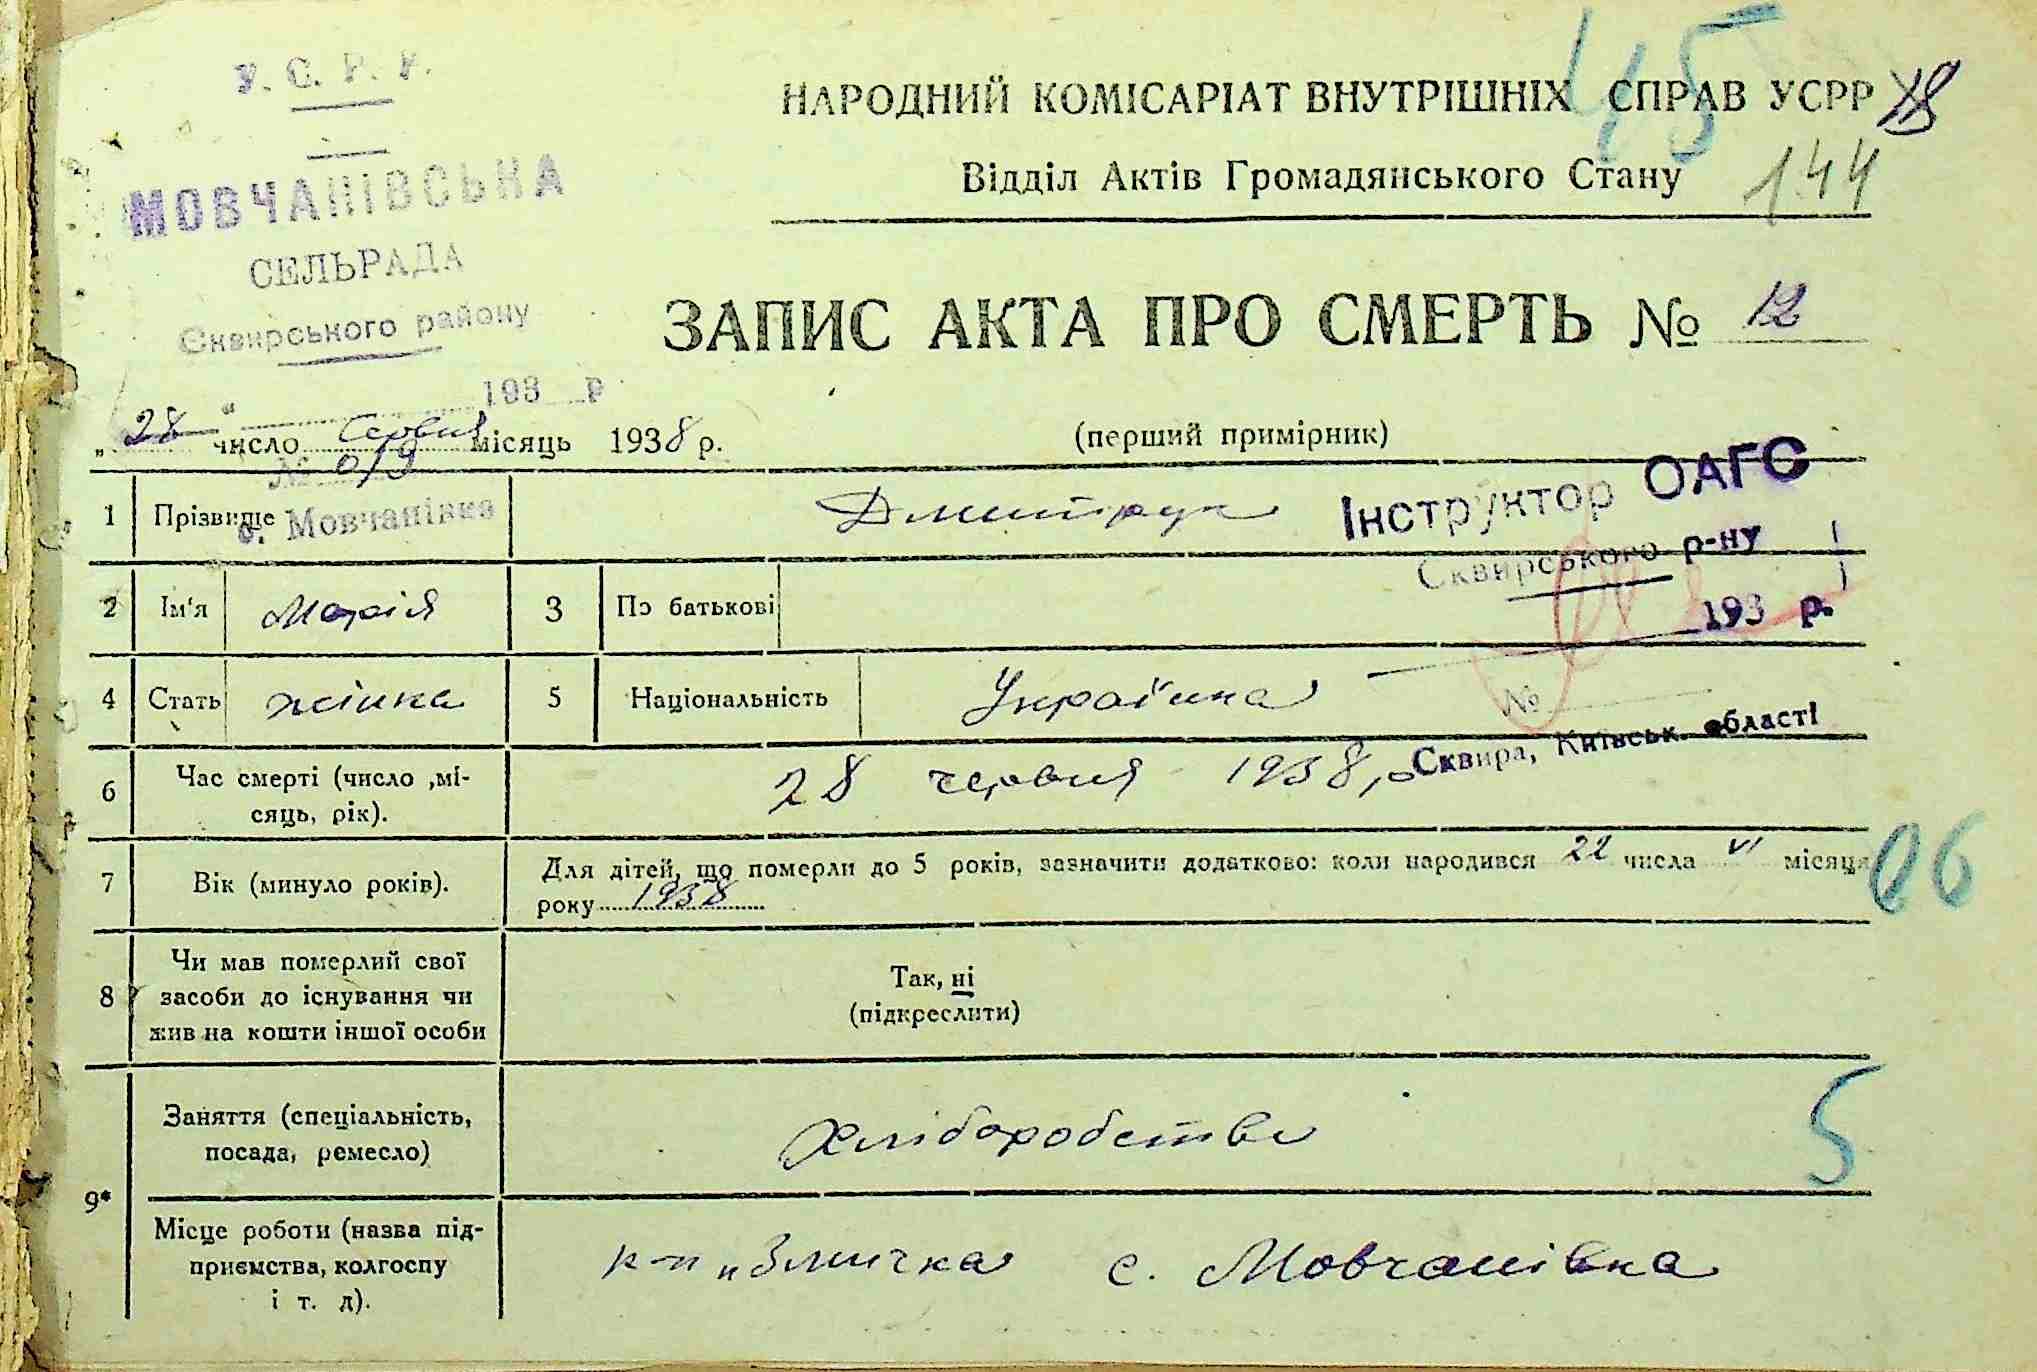 У. С. Р. Р.
МОВЧАНІВСЬКА
СЕЛЬРАДА
Сквирського району
193 р
№ 0/9
с. Мовчанівка
45
НАРОДНИЙ КОМІСАРІАТ ВНУТРІШНІХ СПРАВ УСРР
Відділ Актів Громадянського Стану
144
ЗАПИС АКТА ПРО СМЕРТЬ № 12
„ 28 число Червня місяць 1938 р.
(перший примірник)
Інструктор ОАГС
Сквирського р-ну
193 р.
№
Сквира, Київськ. області
1 Прізвище Дмитрук
2 Ім'я Марія 3 По батькові
4 Стать жінка 5 Національність Українка
6 Час смерті (число ,мі-
сяць, рік). 28 червня 1938 р
7 Вік (минуло років). Для дітей, що померли до 5 років, зазначити додатково: коли народився 22 числа VI місяця
року 1938
06
8 Чи мав померлий свої
засоби до існування чи
жив на кошти іншої особи
Так, ні
(підкреслити)
9* Заняття (спеціальність,
посада, ремесло) Хліборобство
5
Місце роботи (назва під-
приємства, колгоспу
і т. д). к-п „Змичка с. Мовчанівка